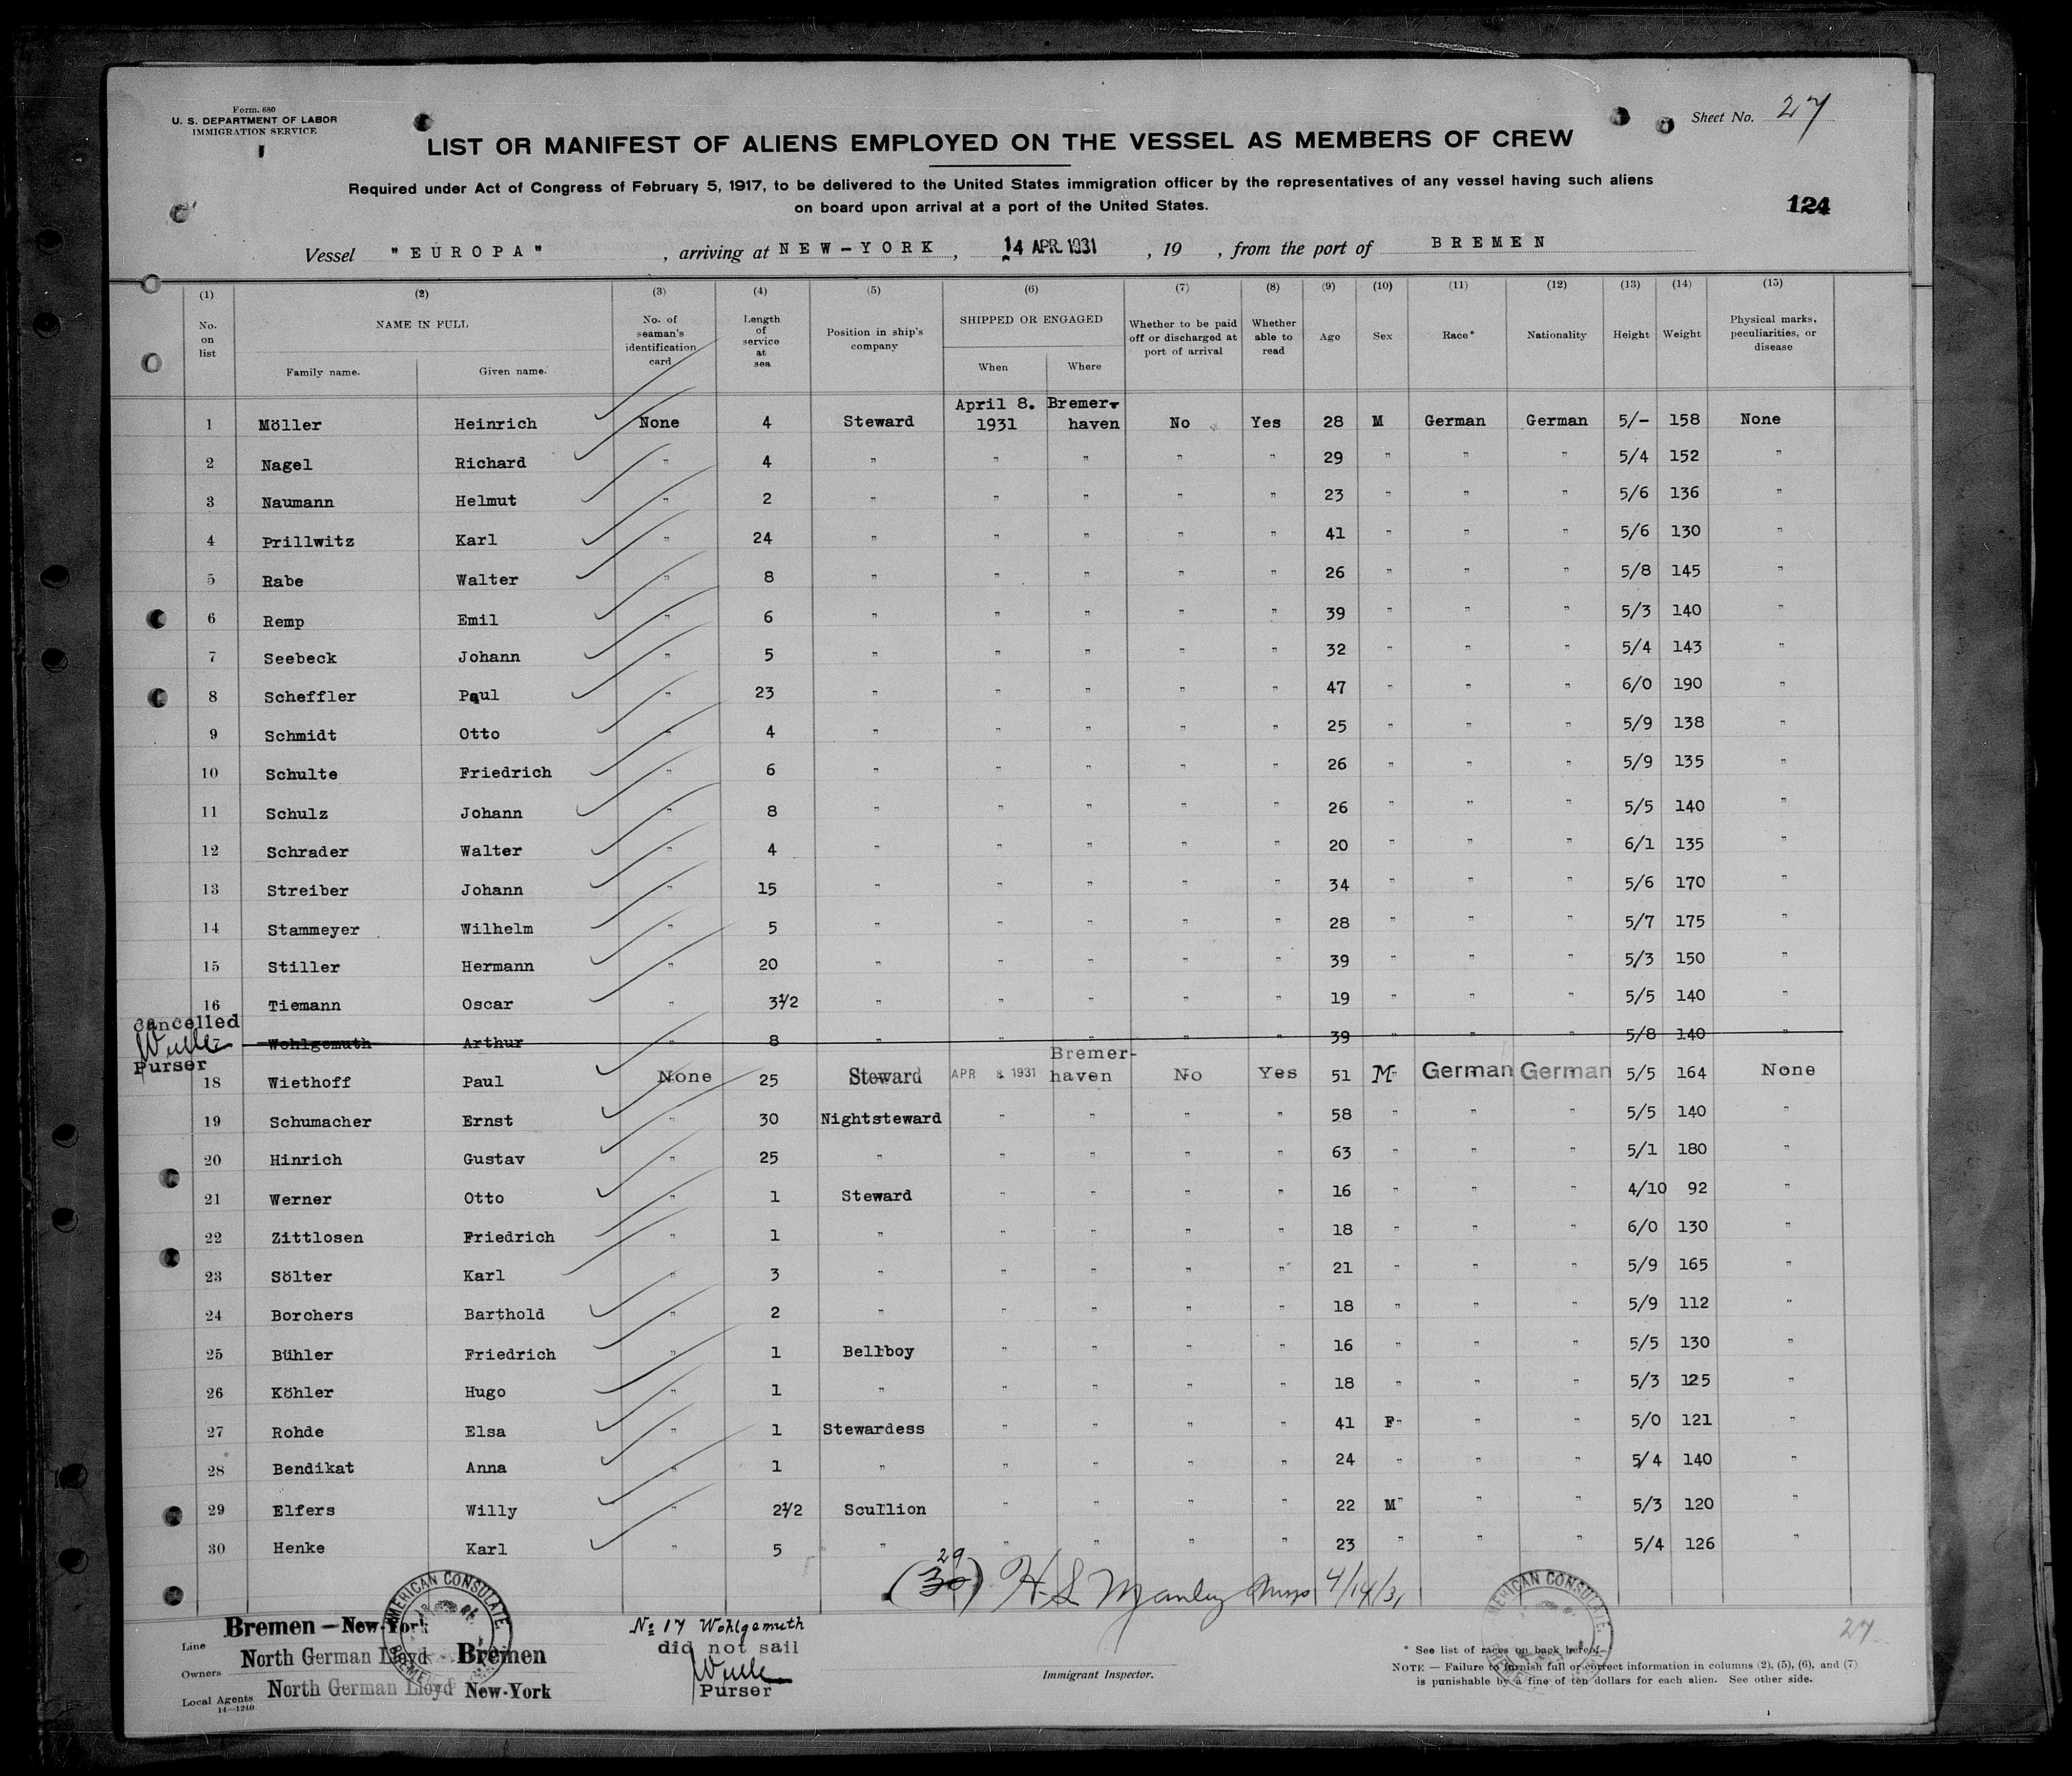 Form. 680
U. S. DEPARTMENT OF LABOR
IMMIGRATION SERVICE
Sheet No. 27
LIST OR MANIFEST OF ALIENS EMPLOYED ON THE VESSEL AS MEMBERS OF CREW
Required under Act of Congress of February 5, 1917, to be delivered to the United States immigration officer by the representatives of any vessel having such aliens
on board upon arrival at a port of the United States.
124
Vessel "EUROPA", arriving at NEW-YORK, 14 APR. 1931, 19 , from the port of BREMEN
(1) (2) (3) (4) (5) (6) (7) (8) (9) (10) (11) (12) (13) (14) (15)
No. on list NAME IN FULL Family name. Given name. No. of seaman's identification card Length of service at sea Position in ship's company SHIPPED OR ENGAGED When Where Whether to be paid off or discharged at port of arrival Whether able to read Age Sex Race* Nationality Height Weight Physical marks, peculiarities, or disease
1 Möller Heinrich None 4 Steward April 8. 1931 Bremer-haven No Yes 28 M German German 5/- 158 None
2 Nagel Richard " 4 " " " " " 29 " " " 5/4 152 "
3 Naumann Helmut " 2 " " " " " 23 " " " 5/6 136 "
4 Prillwitz Karl " 24 " " " " " 41 " " " 5/6 130 "
5 Rabe Walter " 8 " " " " " 26 " " " 5/8 145 "
6 Remp Emil " 6 " " " " " 39 " " " 5/3 140 "
7 Seebeck Johann " 5 " " " " " 32 " " " 5/4 143 "
8 Scheffler Paul " 23 " " " " " 47 " " " 6/0 190 "
9 Schmidt Otto " 4 " " " " " 25 " " " 5/9 138 "
10 Schulte Friedrich " 6 " " " " " 26 " " " 5/9 135 "
11 Schulz Johann " 8 " " " " " 26 " " " 5/5 140 "
12 Schrader Walter " 4 " " " " " 20 " " " 6/1 135 "
13 Streiber Johann " 15 " " " " " 34 " " " 5/6 170 "
14 Stammeyer Wilhelm " 5 " " " " " 28 " " " 5/7 175 "
15 Stiller Hermann " 20 " " " " " 39 " " " 5/3 150 "
16 Tiemann Oscar " 3 1/2 " " " " " 19 " " " 5/5 140 "
Cancelled
Wohlgemuth Arthur " 8 " " " " " 39 " " " 5/8 140 "
Purser
18 Wiethoff Paul None 25 Steward APR 8. 1931 Bremer-haven No Yes 51 M German German 5/5 164 None
19 Schumacher Ernst " 30 Nightsteward " " " " 58 " " " 5/5 140 "
20 Hinrich Gustav " 25 " " " " " 63 " " " 5/1 180 "
21 Werner Otto " 1 Steward " " " " 16 " " " 4/10 92 "
22 Zittlosen Friedrich " 1 " " " " " 18 " " " 6/0 130 "
23 Sölter Karl " 3 " " " " " 21 " " " 5/9 165 "
24 Borchers Barthold " 2 " " " " " 18 " " " 5/9 112 "
25 Bühler Friedrich " 1 Bellboy " " " " 16 " " " 5/5 130 "
26 Köhler Hugo " 1 " " " " " 18 " " " 5/3 125 "
27 Rohde Elsa " 1 Stewardess " " " " 41 F " " 5/0 121 "
28 Bendikat Anna " 1 " " " " " 24 " " " 5/4 140 "
29 Elfers Willy " 2 1/2 Scullion " " " " 22 M " " 5/3 120 "
30 Henke Karl " 5 " " " " " 23 " " " 5/4 126 "
29
(30) H. S. Manley 4/14/31
Line Bremen - New-York
Owners North German Lloyd Bremen
Local Agents North German Lloyd New-York
14-1240
AMERICAN CONSULATE
BREMEN
No 17 Wohlgemuth
did not sail
Purser
Immigrant Inspector.
AMERICAN CONSULATE
27
* See list of races on back hereof.
NOTE — Failure to furnish full or correct information in columns (2), (5), (6), and (7)
is punishable by a fine of ten dollars for each alien. See other side.